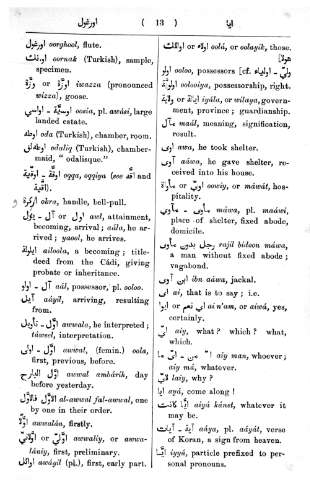 اورغول
( 13 )
ايا
اورغول oorghool, flute.
اورنك oornak (Turkish), sample,
specimen.
وزّة or اوزّة iwazza (pronounced
wizza), goose.
اوسيّة - اواسي oosia, pl. awási, large
landed estate.
اوضه oda (Turkish), chamber, room.
اوطه لق odaliq (Turkish), chamber-
maid, " odalisque."
اوقّة - اوقيّة oqqa, oqqiya (see أقّة and
أقية).
اوكرة okra, handle, bell-pull.
آل - يئول or اول awl, attainment,
becoming, arrival ; aála, he ar-
rived ; yaool, he arrives.
ايلولة ailoola, a becoming ; title-
deed from the Cádi, giving
probate or inheritance.
آل - اولو aál, possessor, pl. ooloo.
آيل aáyil, arriving, resulting
from.
اوّل - تأويل awwalo, he interpreted ;
táwsel, interpretation.
اوّل - اولى awwal, (femin.) oola,
first, previous, before.
اوّل البارح awwal ambárih, day
before yesterday.
الاوّل فالاوّل al-awwal fal-awwal, one
by one in their order.
اوّلاً awwalán, firstly.
اوّليّ or اوّلاني awwaliy, or awwa-
láaniy, first, preliminary.
اوائل awáyil (pl.), first, early part.
اولائك or اولاء oolá, or oolayik, those.
هولاء
اولو ooloo, possessors [cf. وليّ - اولياء].
اولويّة oolowiya, possessorship, right.
ولاية or ايالة iyála, or wilaya, govern-
ment, province ; guardianship.
مآل maál, meaning, signification,
result.
اوى awa, he took shelter.
آوى aáwa, he gave shelter, re-
ceived into his house.
مأواة or اوويّ oowiy, or máwát, hos-
pitality.
مأوى - مآوي máwa, pl. maáwi,
place of shelter, fixed abode,
domicile.
رجل بدون مأوى rajil bidoon máwa,
a man without fixed abode ;
vagabond.
ابن آوى ibn aáwa, jackal.
اى ai, that is to say ; i.e.
ايوا or اى نعم ai n'am, or aiwá, yes,
certainly.
أيّ aiy, what? which? what,
which.
أيّ من - أيّ ما aiy man, whoever ;
aiy má, whatever.
لايّ laiy, why ?
ايا ayá, come along !
أيّا كانت aiyá kánet, whatever it
may be.
آية - آيات aáya, pl. aáyát, verse
of Koran, a sign from heaven.
إيّا iyyá, particle prefixed to per-
sonal pronouns.